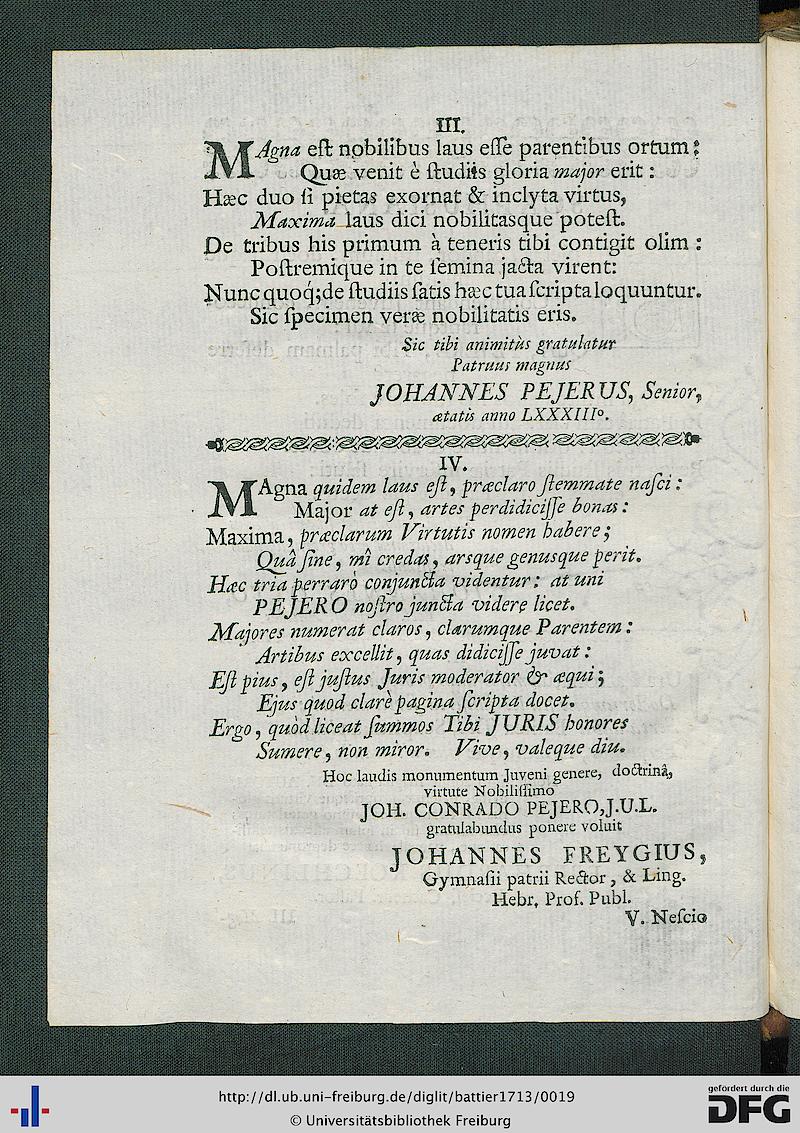 III.
MAgna eſt nobilibus laus eſſe parentibus ortum:
Quæ venit è ſtudiis gloria major erit:
Hæc duo ſi pietas exornat & inclyta virtus,
Maxima laus dici nobilitasque poteſt.
De tribus his primum à teneris tibi contigit olim:
Poſtremique in te ſemina jacta virent:
Nunc quoq́;de ſtudiis ſatis hæc tua ſcripta loquuntur.
Sic ſpecimen veræ nobilitatis eris.
Sic tibi animitùs gratulatur
Patruus magnus
JOHANNES PEJERUS, Senior,
ætatis anno LXXXIIIº.
IV.
MAgna quidem laus eſt, præclaro ſtemmate naſci:
Major at eſt, artes perdidiciſſe bonas:
Maxima, præclarum Virtutis nomen habere;
Quâ ſine, mî credas, arsque genusque perit.
Hæc tria perrarò conjuncta videntur: at uni
PEJERO noſtro juncta videre licet.
Majores numerat claros, clarumque Parentem:
Artibus excellit, quas didiciſſe juvat:
Eſt pius, eſt juſtus Juris moderator & æqui;
Ejus quod clarè pagina ſcripta docet.
Ergo, quòd liceat ſummos Tibi JURIS honores
Sumere, non miror. Vive, valeque diu.
Hoc laudis monumentum Juveni genere, doctrinâ,
virtute Nobiliſſimo
JOH. CONRADO PEJERO, J.U.L.
gratulabundus ponere voluit
JOHANNES FREYGIUS,
Gymnaſii patrii Rector, & Ling.
Hebr. Prof. Publ.
V. Neſcio
http://dl.ub.uni-freiburg.de/diglit/battier1713/0019
© Universitätsbibliothek Freiburg
gefördert durch die
DFG